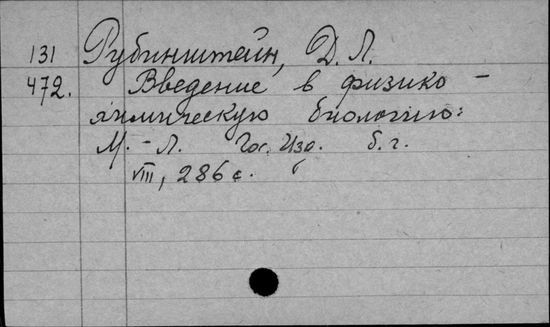 131 Рубинштейн, Д. Л.
472. Введение в физико-
химическую биологию:
М.-Л. Гос. Изд. б. г.
VIII, 286 с.